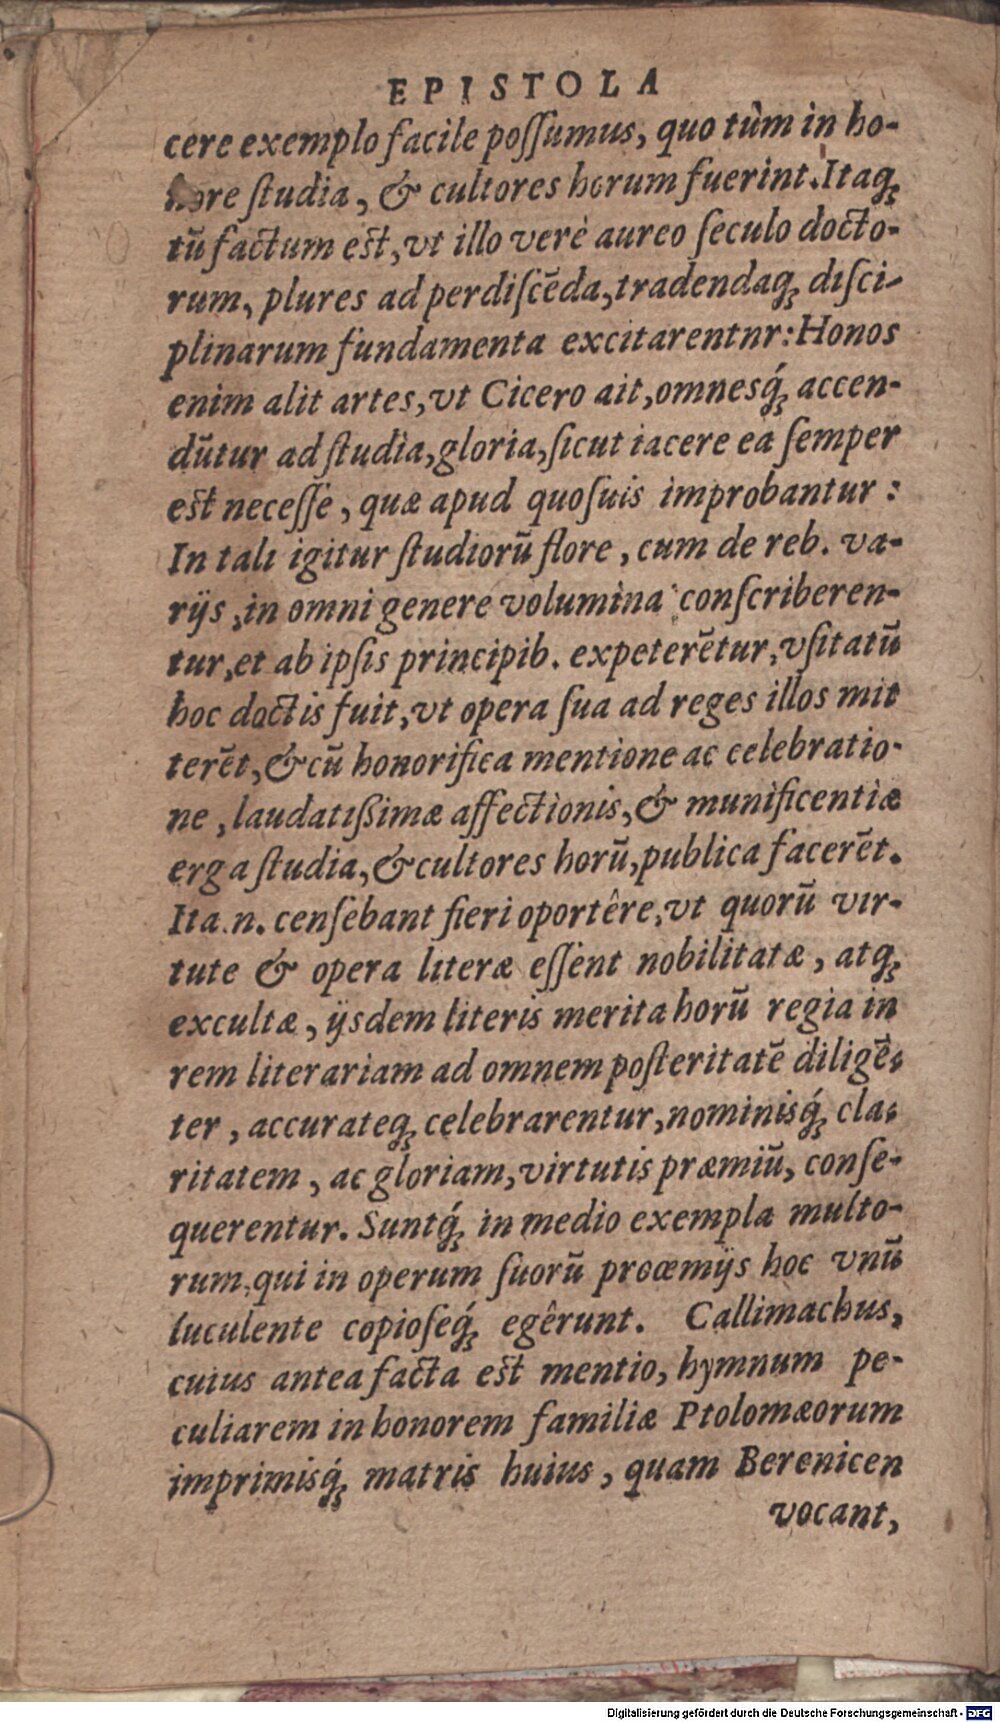 EPISTOLA
cere exemplo facile poſſumus, quo tùm in ho-
nore ſtudia, & cultores horum fuerint. Itaq;
tū factum est, vt illo verè aureo ſeculo docto-
rum, plures ad perdiſcēda, tradendaq; diſci-
plinarum fundamenta excitarentnr: Honos
enim alit artes, vt Cicero ait, omnesq́; accen-
dūtur ad ſtudia, gloria, ſicut iacere ea ſemper
est neceſſe, quæ apud quoſuis improbantur:
In tali igitur ſtudiorū flore, cum de reb. va-
rijs, in omni genere volumina conſcriberen-
tur, et ab ipſis principib. expeterētur, vſitatū
hoc doctis fuit, vt opera ſua ad reges illos mit
terēt, & cū honorifica mentione ac celebratio-
ne, laudatißimæ affectionis, & munificentiæ
erga ſtudia, & cultores horū, publica facerēt.
Ita .n. cenſebant fieri oportêre, vt quorū vir-
tute & opera literæ eſſent nobilitatæ, atq;
excultæ, ijsdem literis merita horū regia in
rem literariam ad omnem poſteritatē diligē-
ter, accurateq; celebrarentur, nominisq́; cla-
ritatem, ac gloriam, virtutis præmiū, conſe-
querentur. Suntq́; in medio exempla multo-
rum, qui in operum ſuorū proœmijs hoc vnū
luculente copioſeq́; egêrunt. Callimachus,
cuius antea facta est mentio, hymnum pe-
culiarem in honorem familiæ Ptolomæorum
imprimisq́; matris huius, quam Berenicen
vocant,
Digitalisierung gefördert durch die Deutsche Forschungsgemeinschaft - DFG